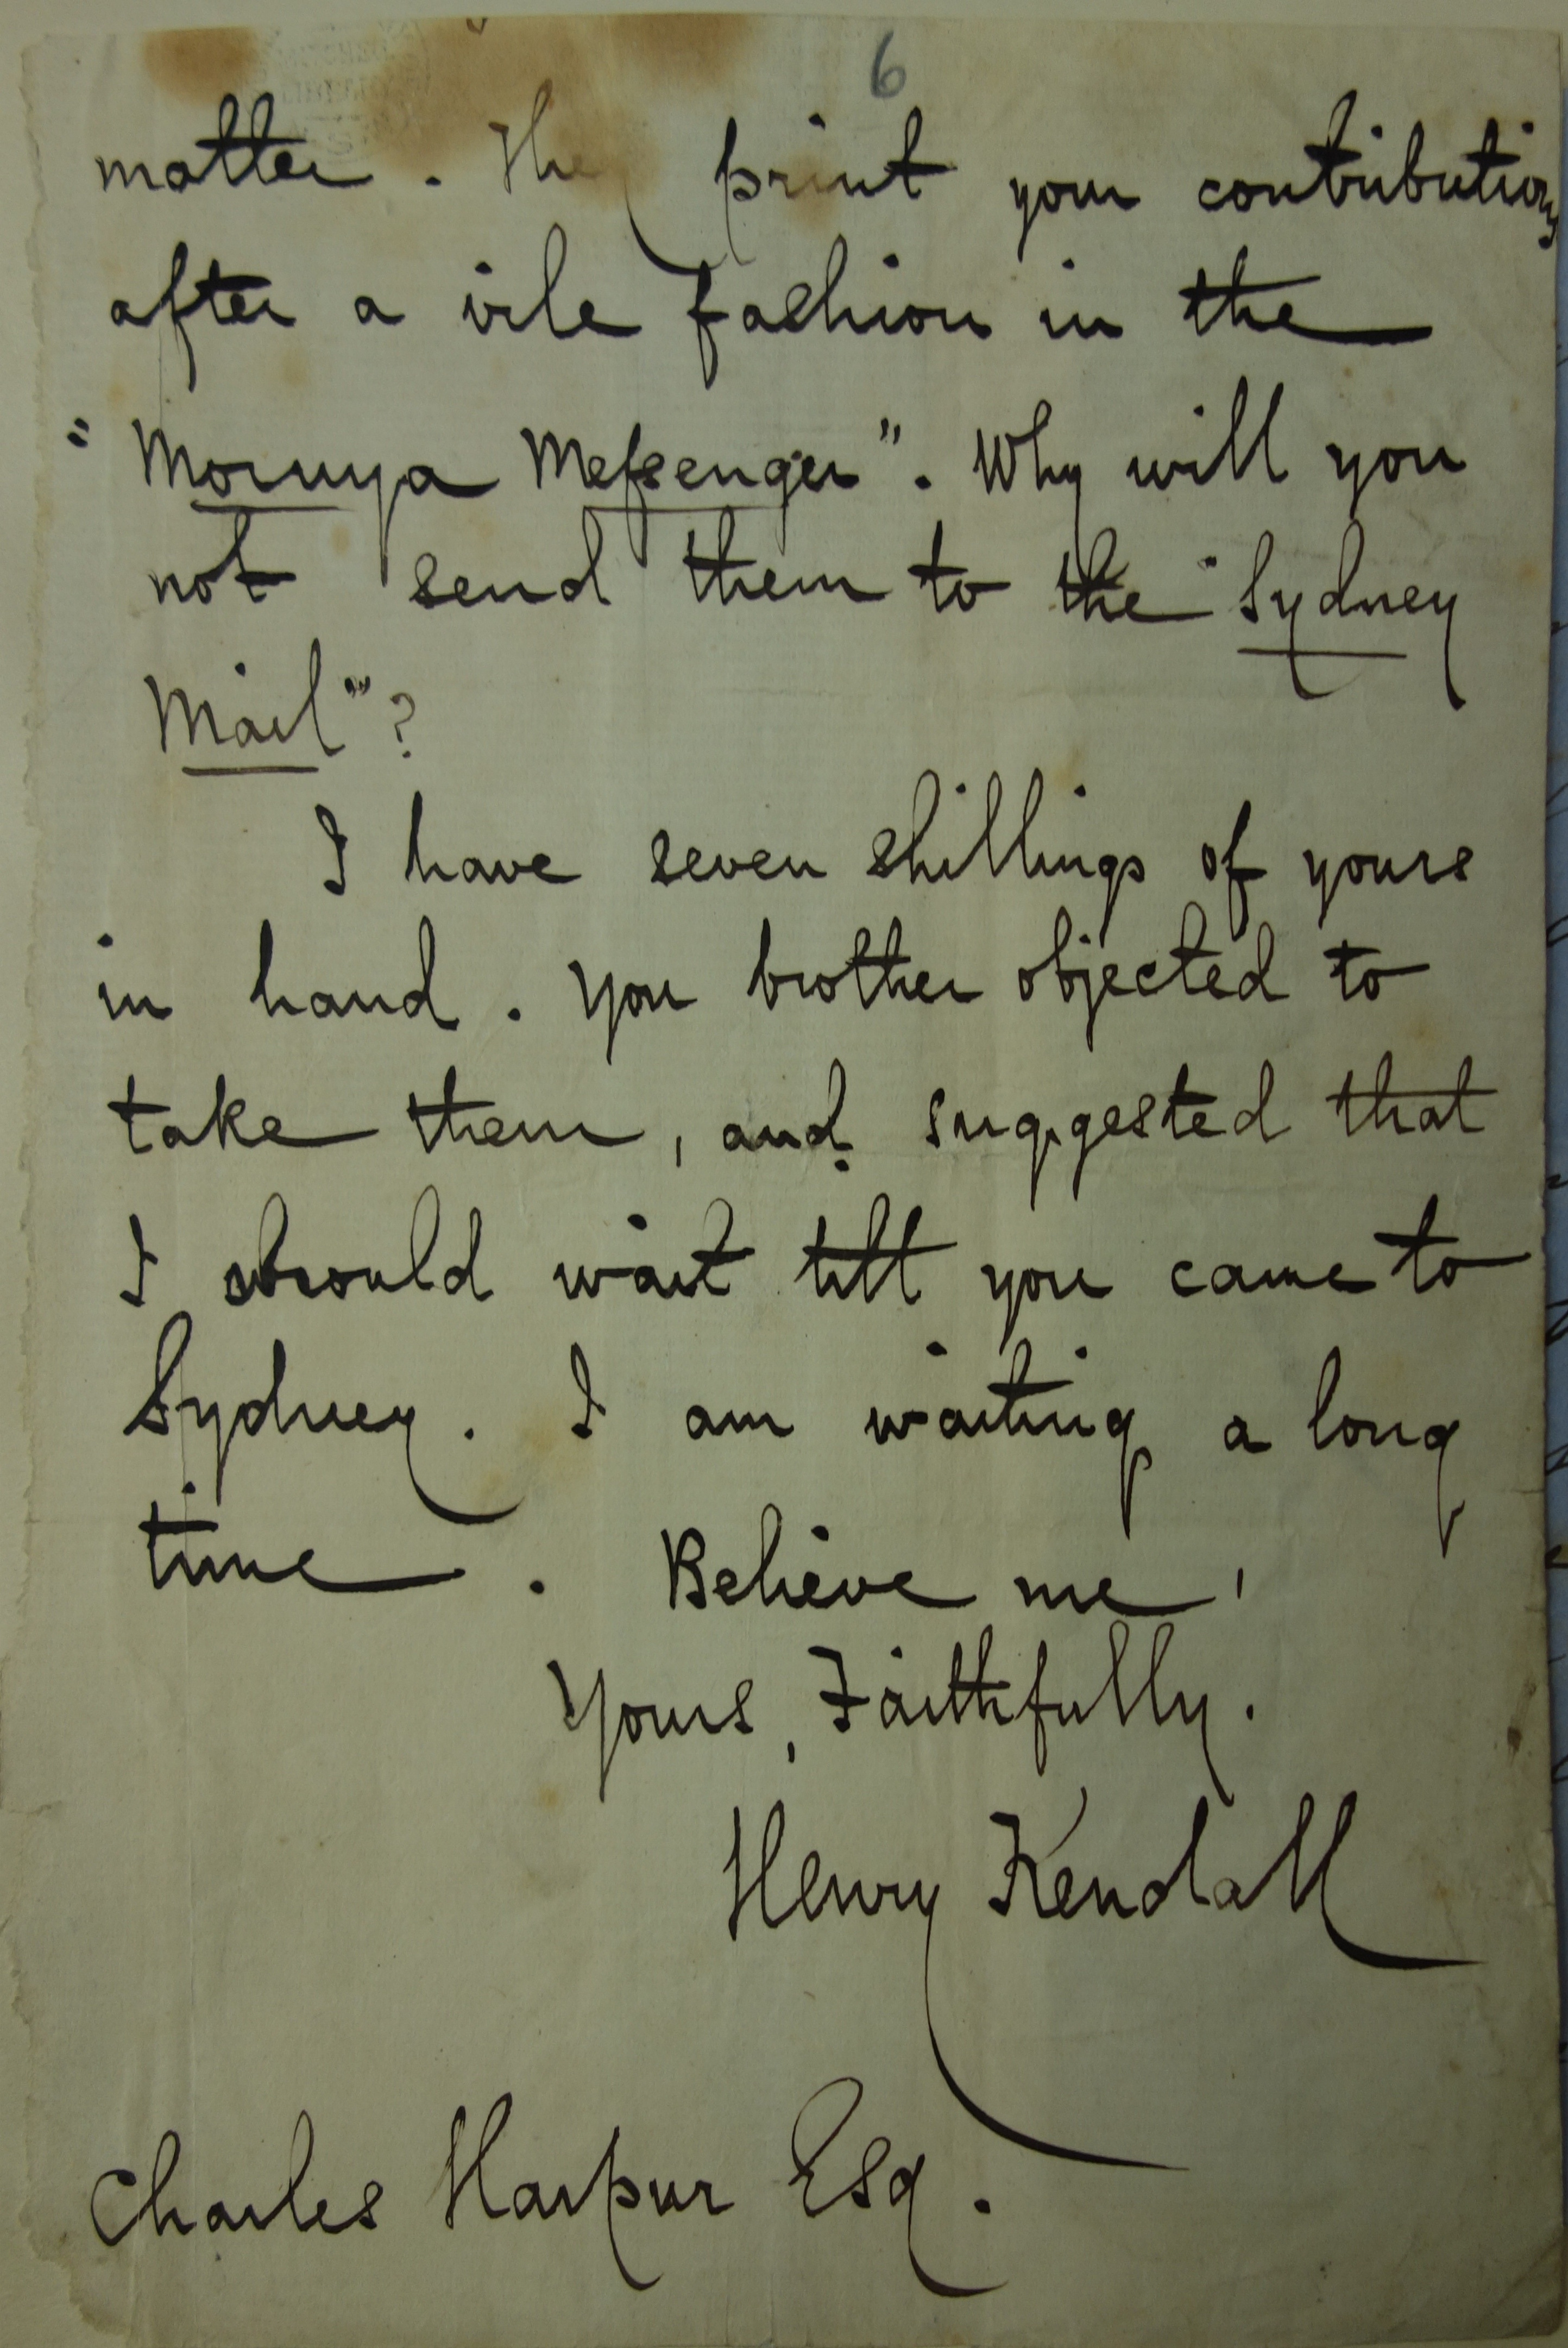 6
matter. They print your contributions
after a vile fashion in the
"Moruya Messenger". Why will you
not send them to the "Sydney
Mail"?
I have seven shillings of yours
in hand. Your brother objected to
take them, and suggested that
I should wait till you came to
Sydney. I am waiting a long
time. Believe me,
Yours, Faithfully.
Henry Kendall
Charles Harpur Esq.